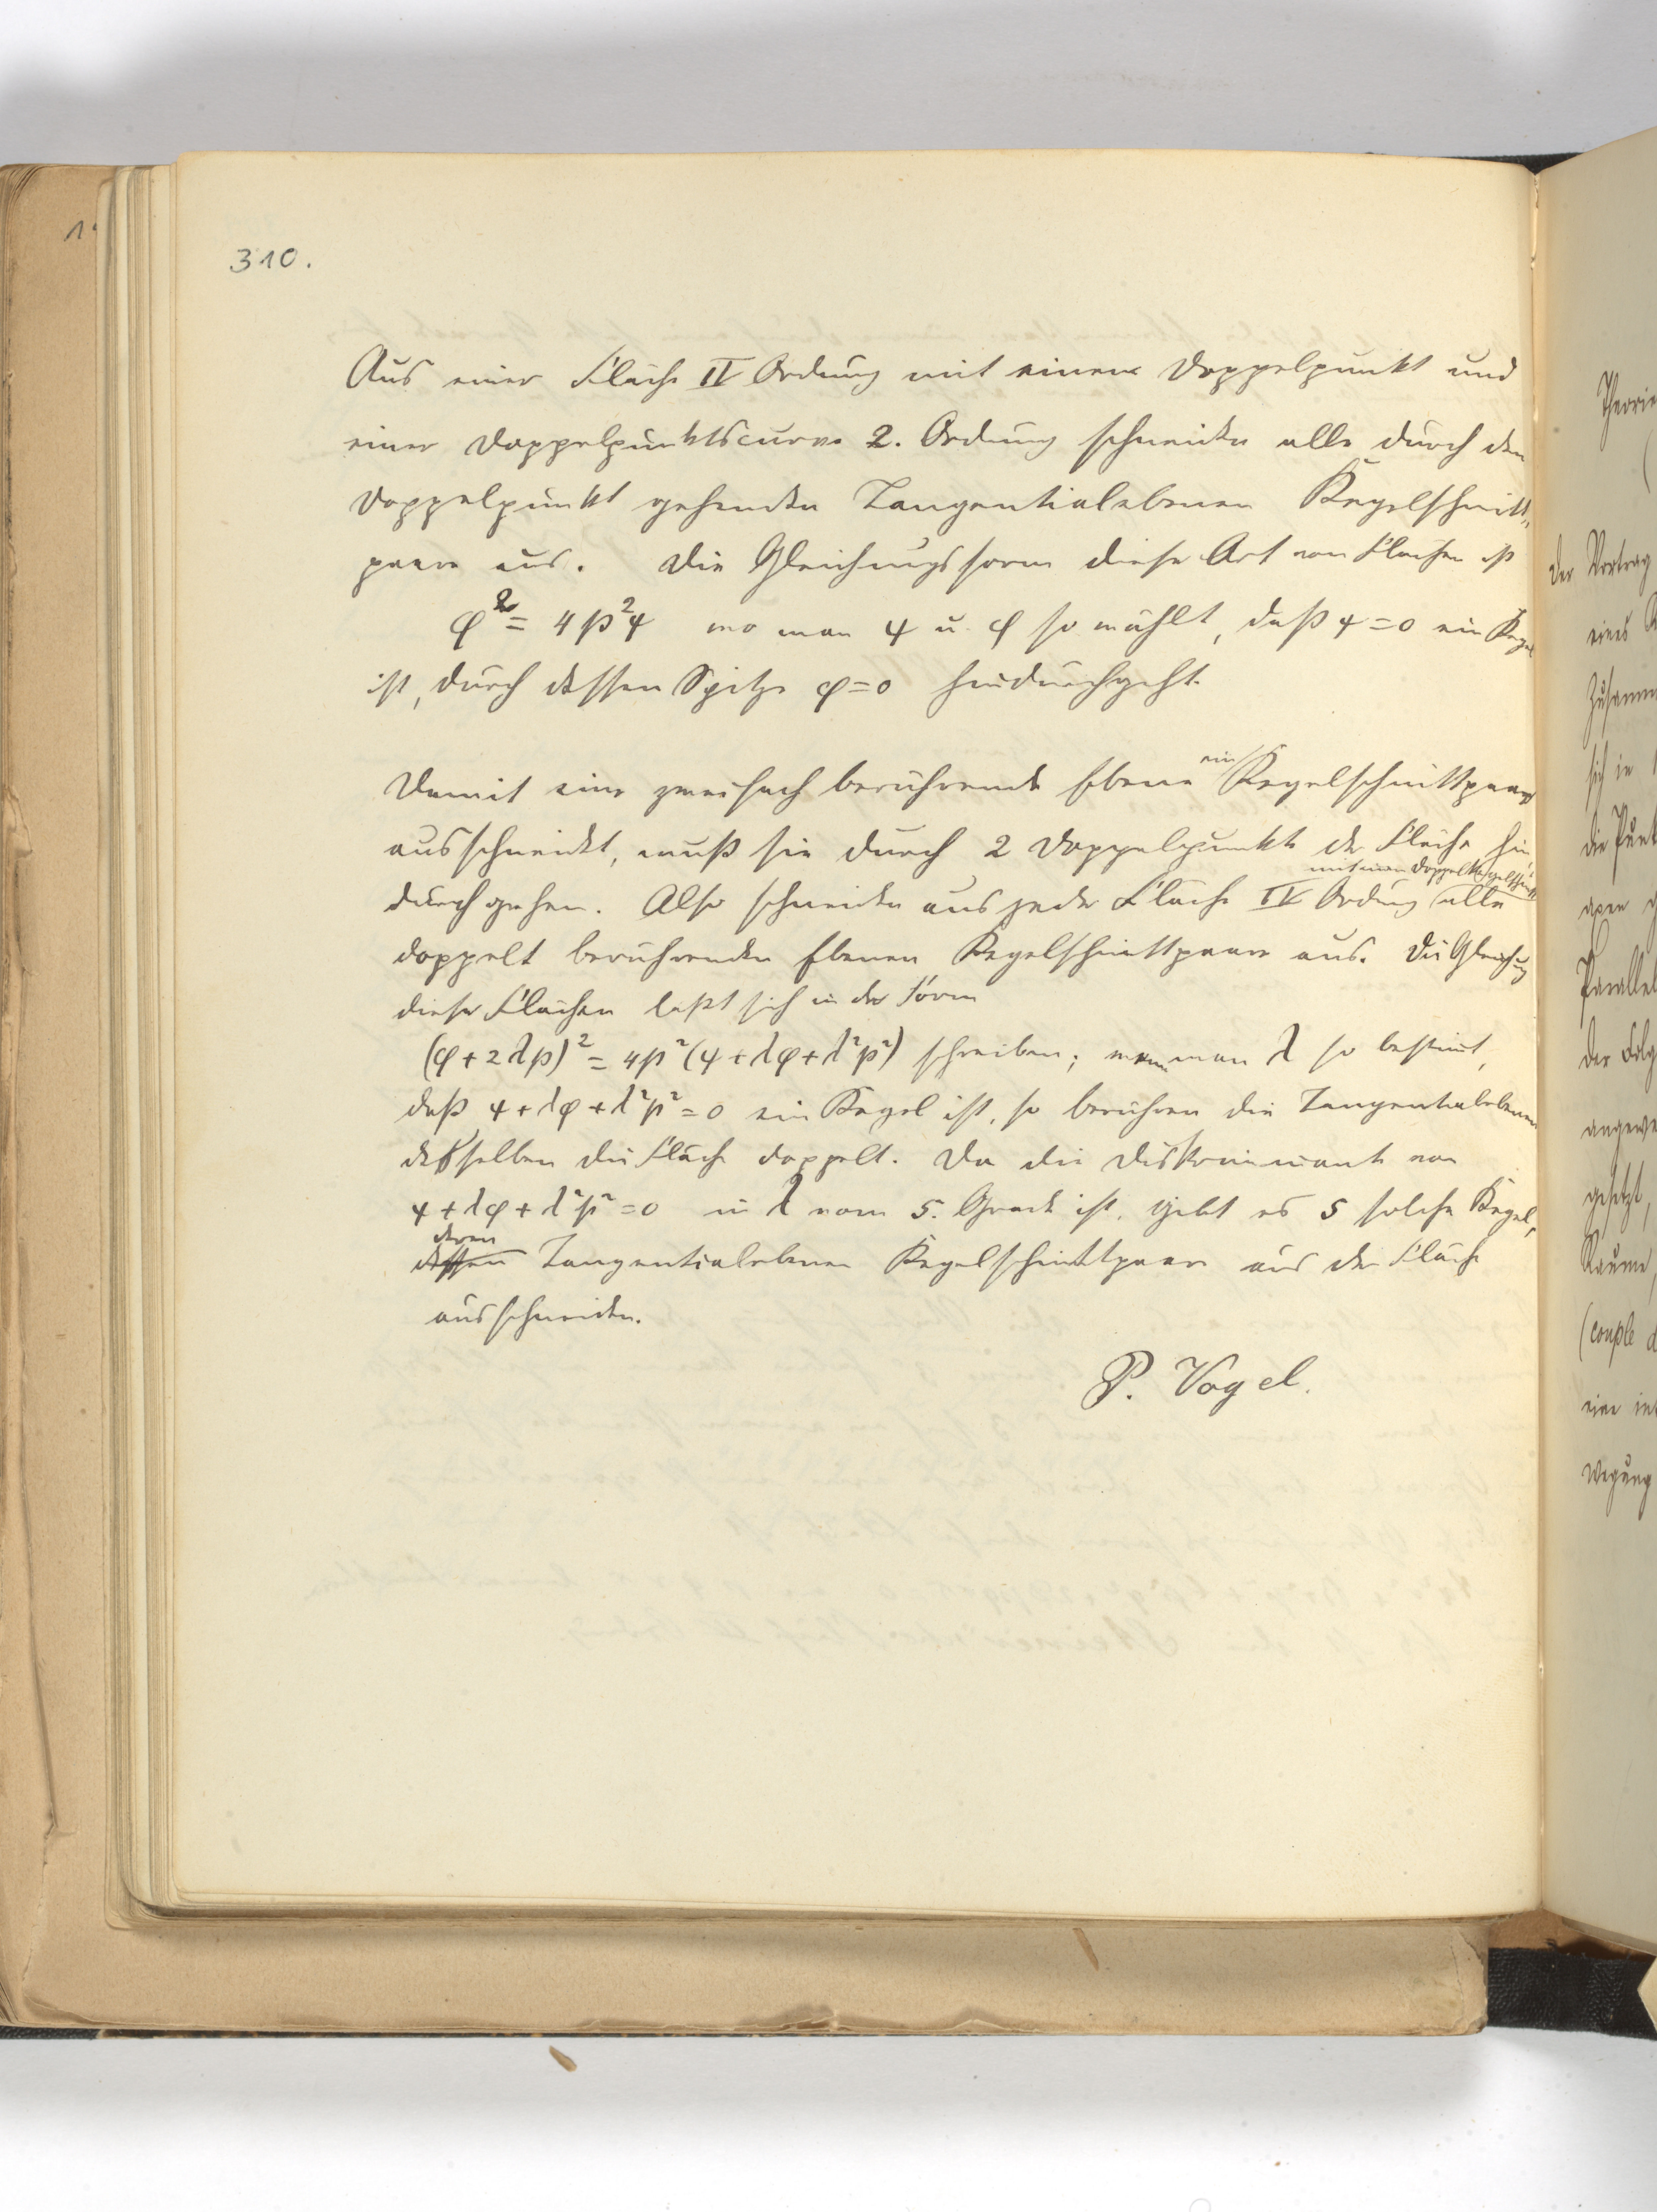 310.
Aus einer Fläche IV Ordnung mit einem Doppelpunkt und
einer Doppelpunktscurve 2. Ordnung schneiden alle durch den
Doppelpunkt gehenden Tangentialebenen Kegelschnitt-
paare aus. Die Gleichungsform dieser Art von Flächen ist
φ² = 4p²ψ wo man ψ u. φ so wählt, daß ψ=0 ein Kegel
ist, durch dessen Spitze φ=0 hindurchgeht.
Damit eine zweifach berührende Ebene ein Kegelschnittpaar
ausschneidet, muß sie durch 2 Doppelpunkte der Fläche hin-
durch gehen. Also schneiden aus jeder Fläche IV Ordnung mit einem Doppelkegelschnitt alle
doppelt berührenden Ebenen Kegelschnittpaare aus. Die Gleichung
dieser Flächen läßt sich in der Form
(φ+2λp)² = 4p²(ψ+λφ+λ²p²) schreiben; wenn man λ so bestimt,
daß ψ+λφ+λ²p²=0 ein Kegel ist, so berühren die Tangentialebenen
desselben die Fläche doppelt. Da die Diskriminante von
ψ+λφ+λ²p²=0 in λ vom 5. Grade ist, giebt es 5 solche Kegel,
deren
dessen Tangentialebenen Kegelschnittpaare aus der Fläche
ausschneiden.
P. Vogel.
Theorie
Der Vortrag
eines
Zusamm
sich in
die Punk
axen
Parallel
der Folg
angewe
gesetzt,
Raume,
(couple d
eine
wegung